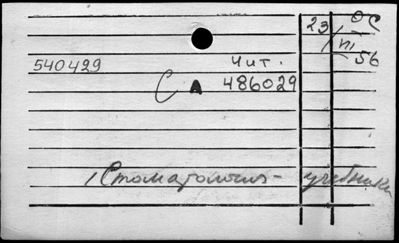 23 ОС
VI 56
540429 Чит.
С А 486029
Стоматология - учебники